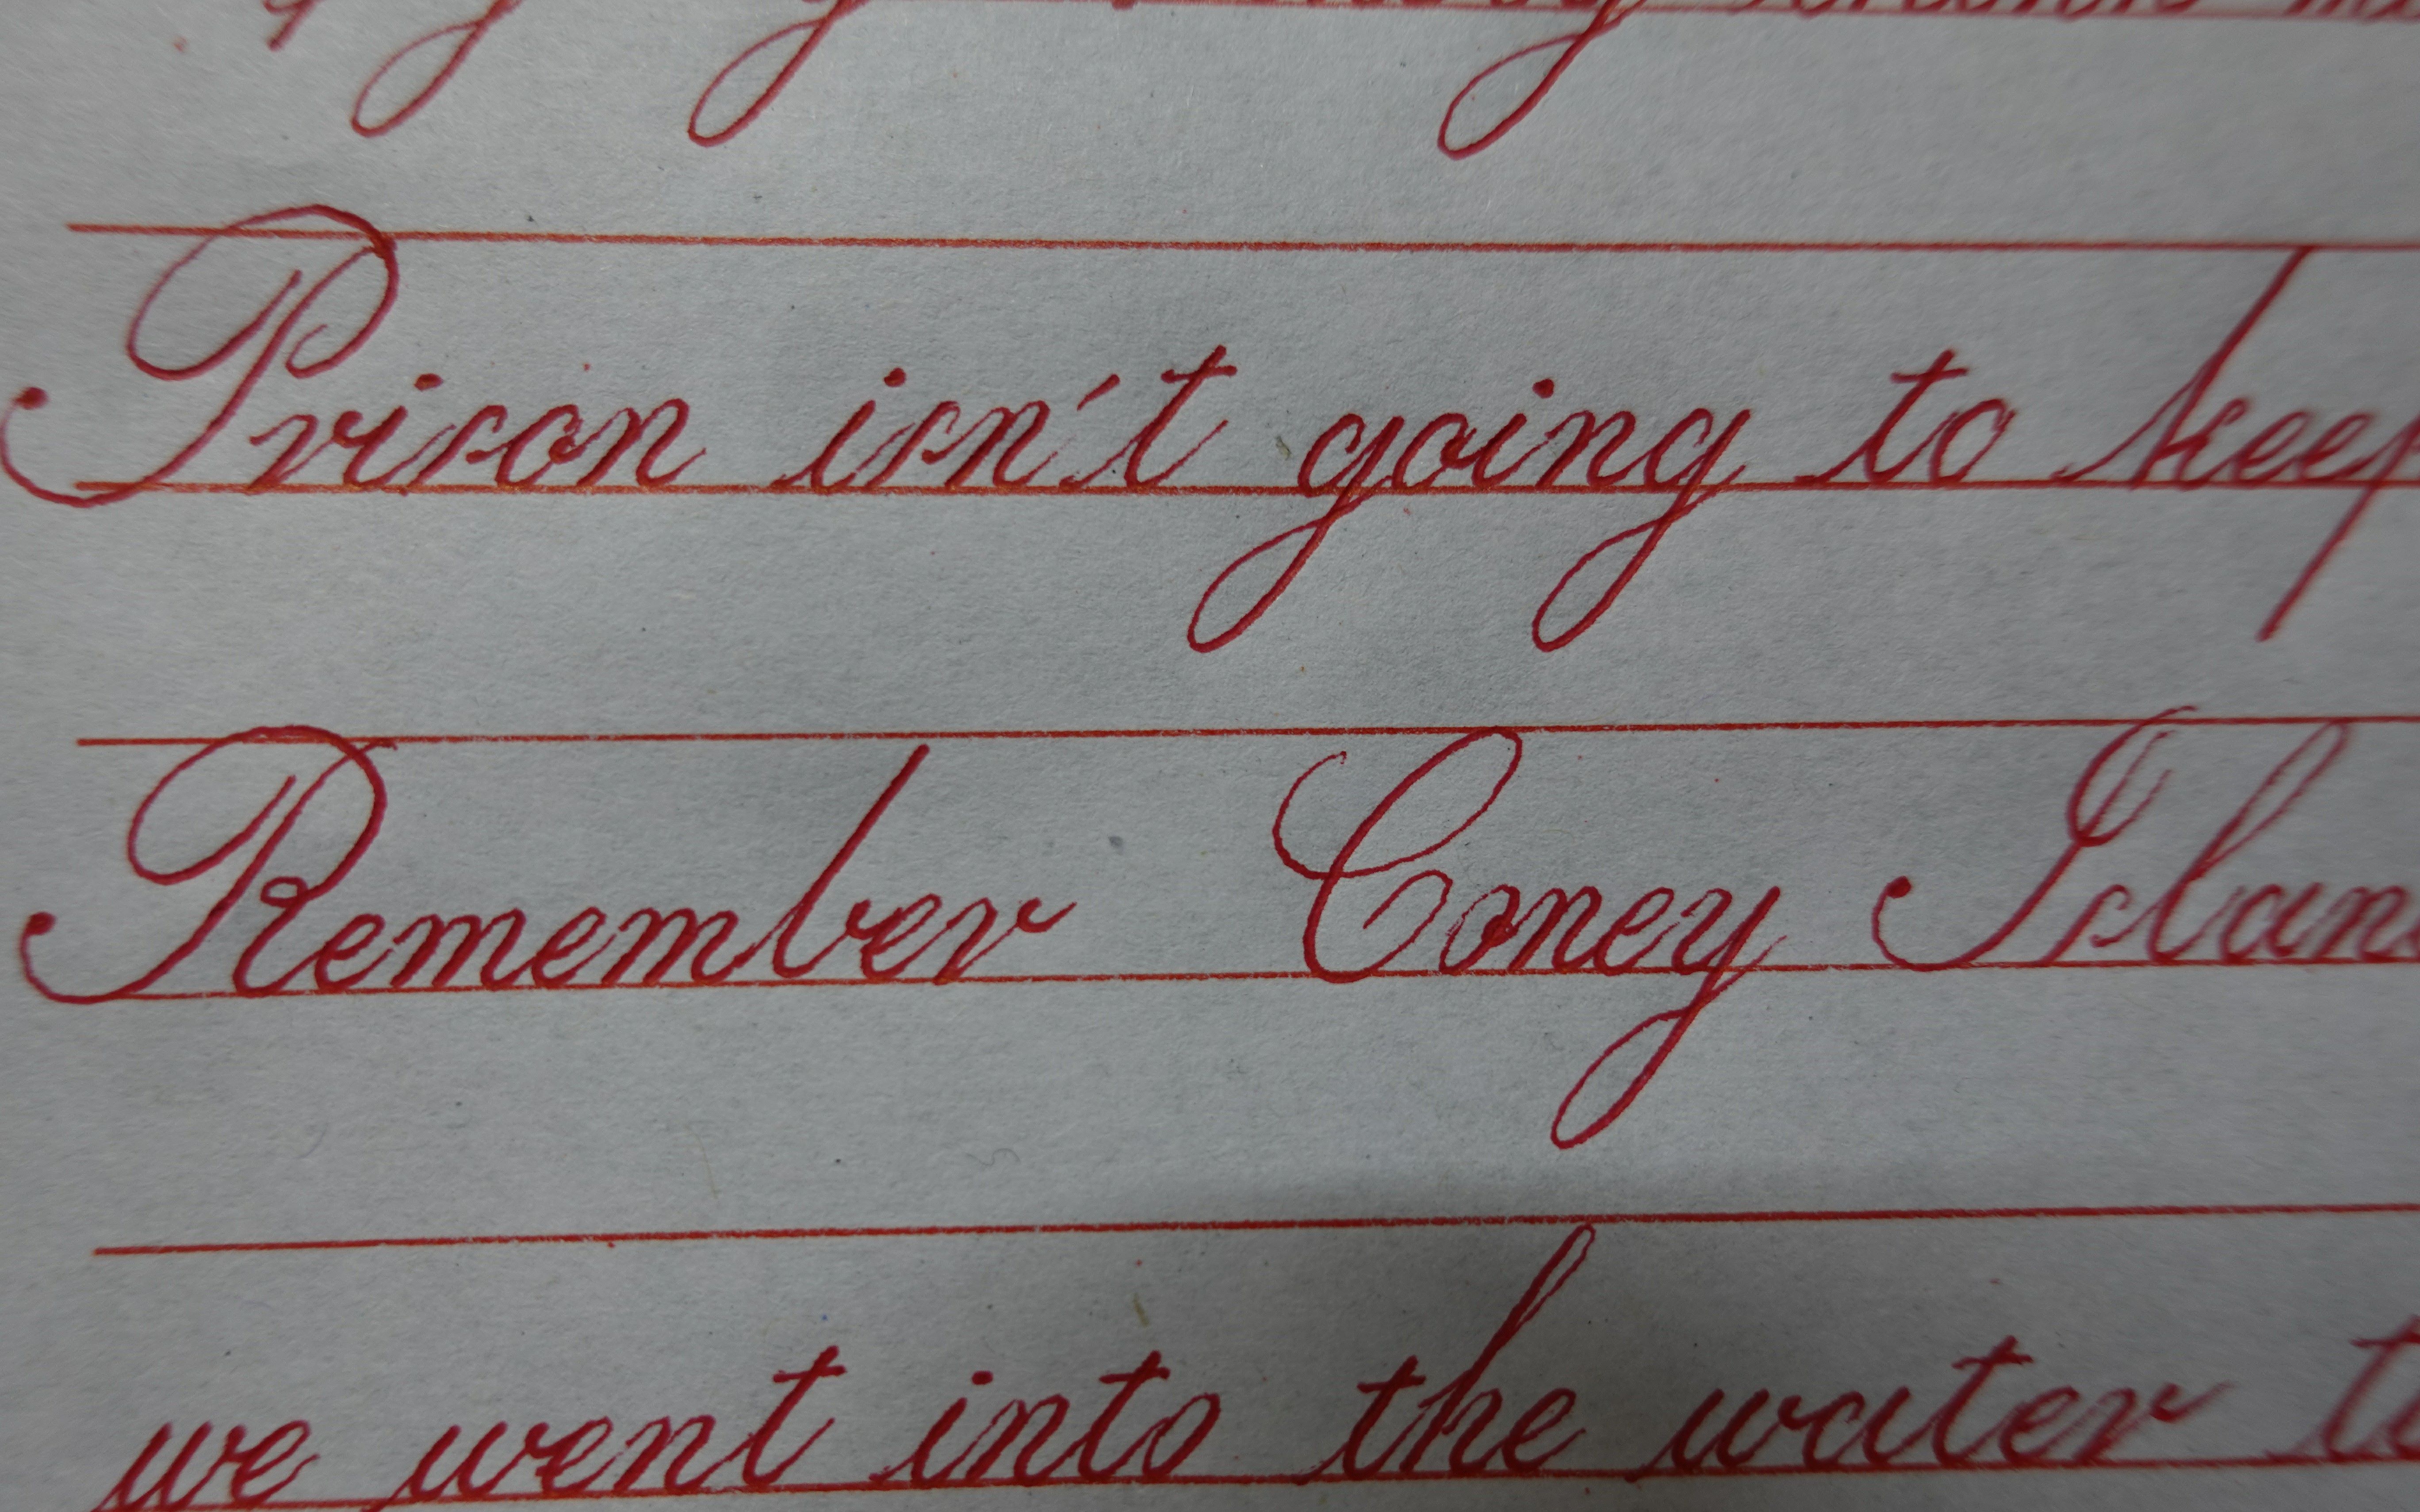 Prison isn't going to keep
Remember Coney Islan
we went into the water t